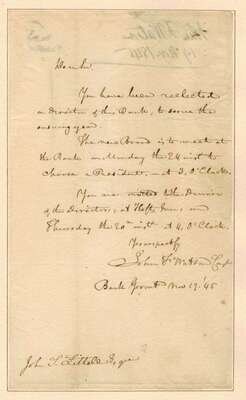 Dear Sir.
You have been reelected
a director of the Bank, to serve the
ensuing year.
The new Board is to meet at
the Bank on Monday the 24 inst to
choose a President, at 3, O'Clock.
You are invited to the Dinner
of the directors, at Inn, on
Thursday the 20th inst at 4, O'Clock.
John F Watson Cas
Bank Nov 17.'45
John S. Littell Esqre